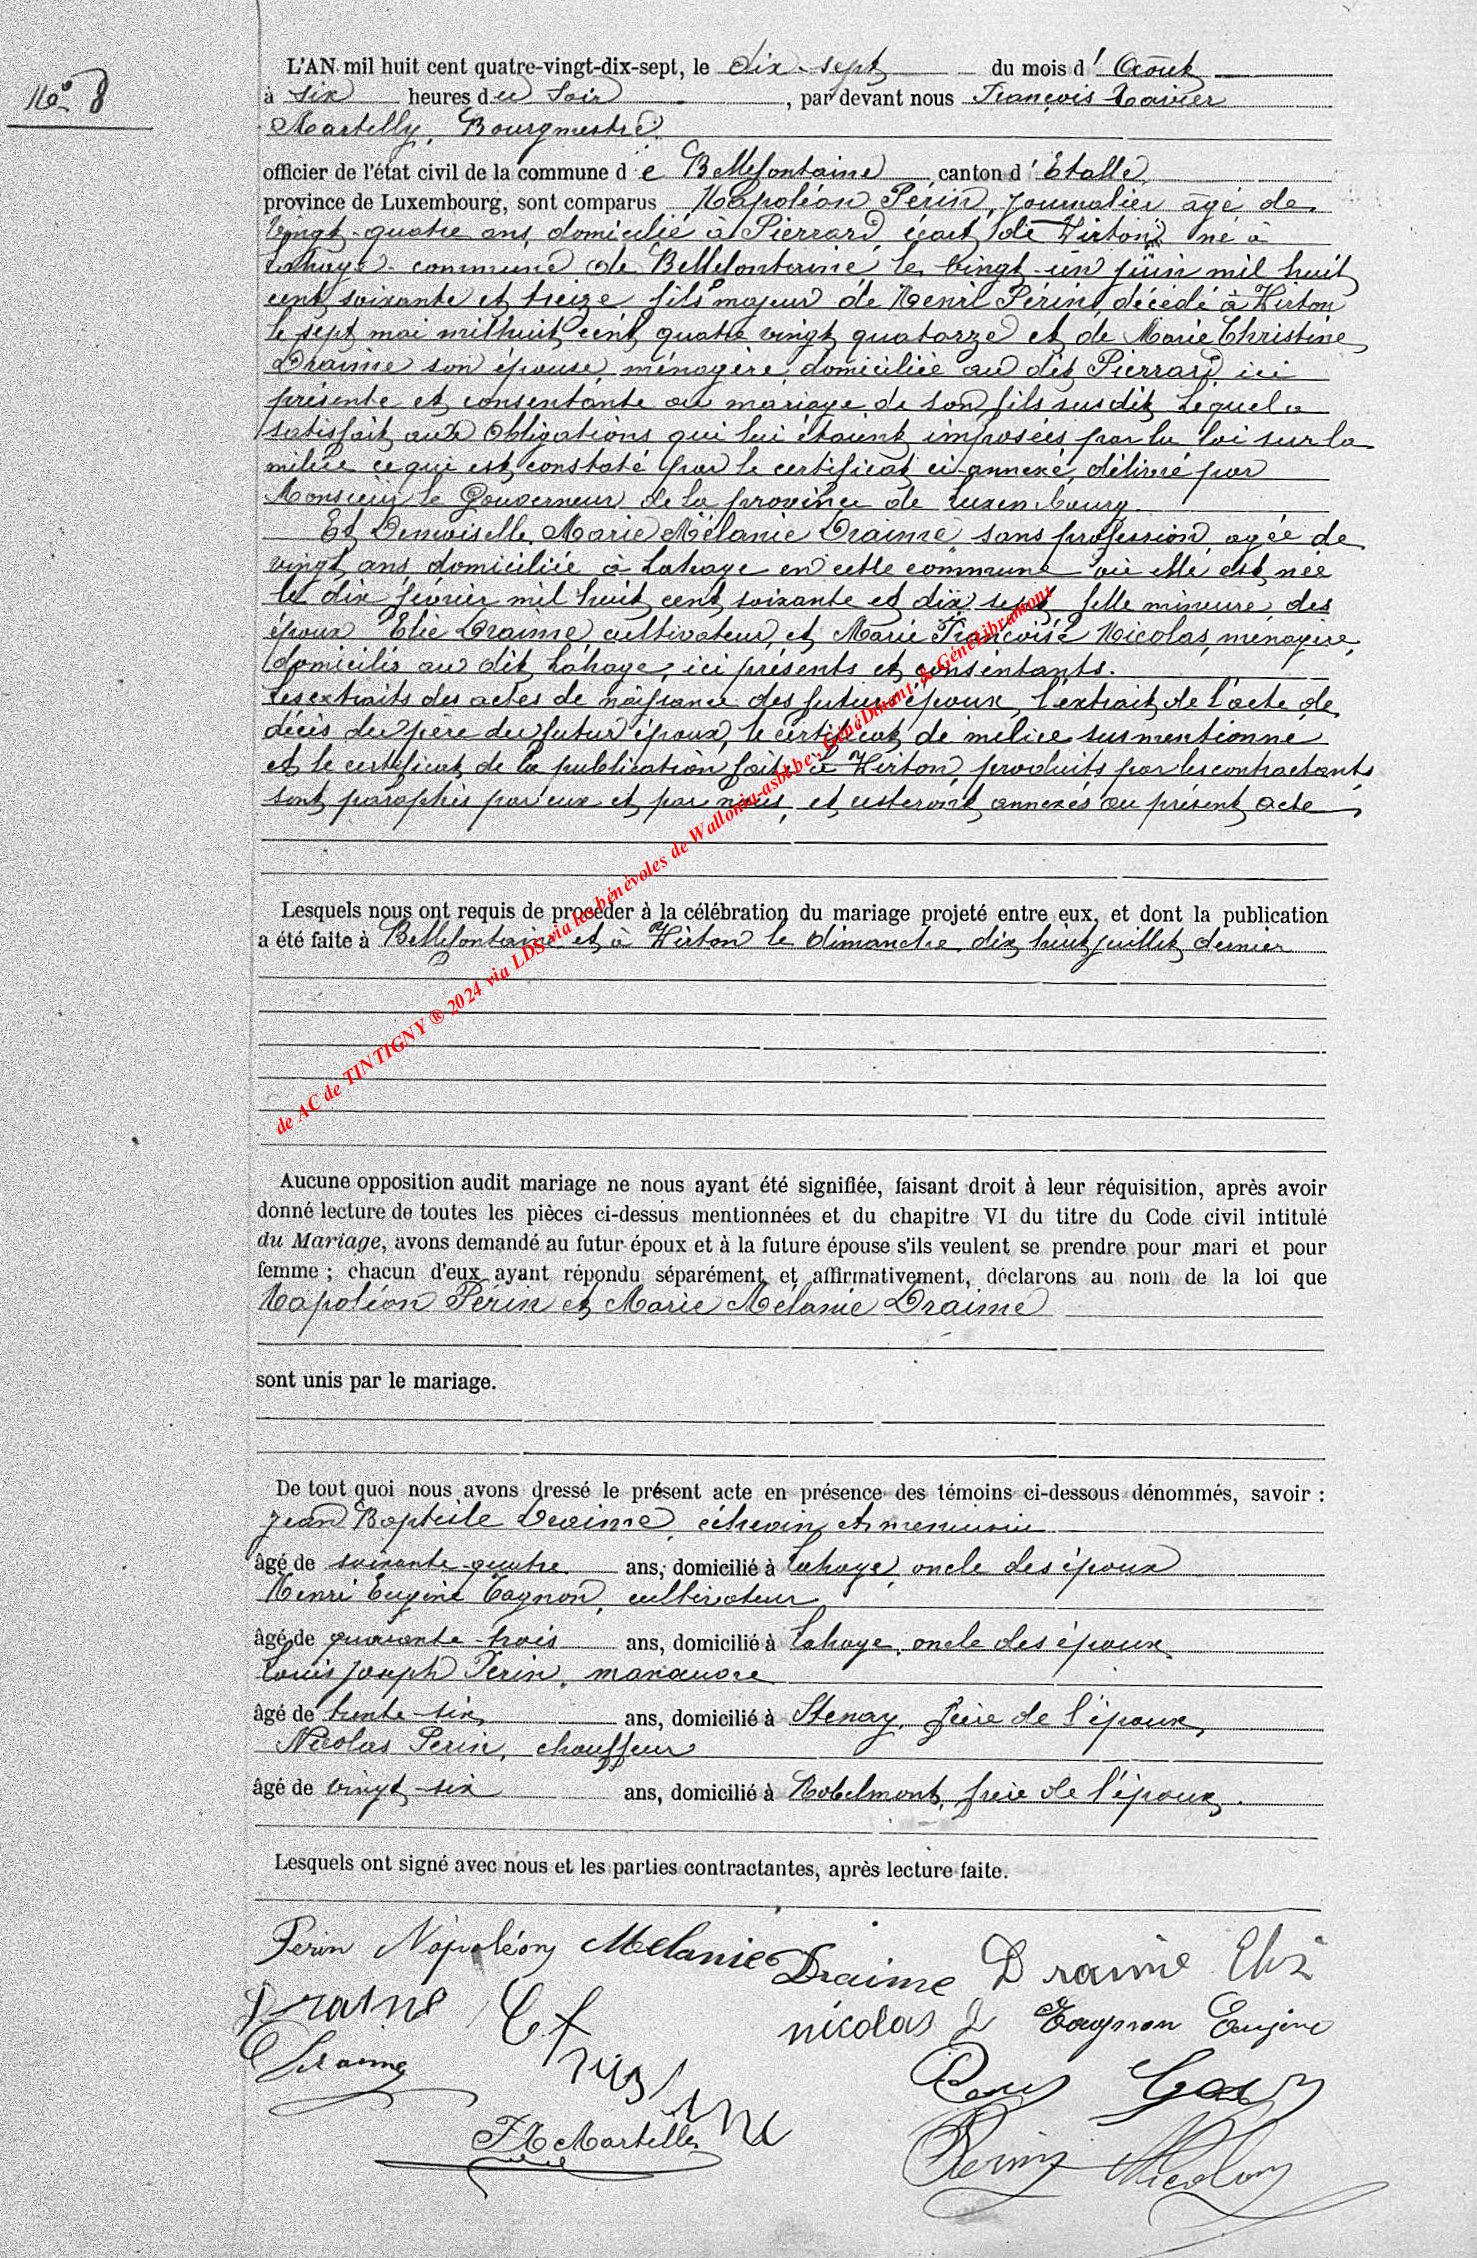 No 8
L'AN mil huit cent quatre-vingt-dix-sept, le dix-sept du mois d'Août
à six heures du Soir, par devant nous François Xavier
Martilly, Bourgmestre
officier de l'état civil de la commune de Bellefontaine, canton d'Etalle,
province de Luxembourg, sont comparus Napoléon Périn, journalier agé de
vingt-quatre ans, domicilié à Pierrard, écart de Virton, né à
Lahage commune de Bellefontaine le vingt-un juin mil huit
cent soixante et treize, fils majeur de Henri Périn, décédé à Virton
le sept mai mil huit cent quatre vingt quatorze et de Marie Christine
Draime son épouse, ménagère, domiciliée au dit Pierrard, ici
présente et consentante au mariage de son fils susdit, Lequel a
satisfait aux Obligations qui lui étaient imposées par la loi sur la
milice ce qui est constaté par le certificat ci-annexé, délivré par
Monsieur le Gouverneur de la province de Luxembourg.
Et Demoiselle, Marie Mélanie Draime sans profession, agée de
vingt ans, domiciliée à Lahage en cette commune où elle est née
le dix février mil huit cent soixante et dix sept, fille mineure des
époux Elie Draime, cultivateur, et Marie Françoise Nicolas, ménagère,
domiciliés au dit Lahage, ici présents et consentants.
Les extraits des actes de naissance des futurs époux, l'extrait de l'acte de
décès du père du futur époux, le certificat de milice susmentionné
et le certificat de la publication faite à Virton, produits par les contractants,
sont paraphés par eux et par nous, et resteront annexés au présent acte
Lesquels nous ont requis de procéder à la célébration du mariage projeté entre eux, et dont la publication
a été faite à Bellefontaine et à Virton le dimanche dix huit juillet dernier
de AC de TINTIGNY ® 2024 via LDS via les bénévoles de Wallonia-asbl.be, GénéDinant & GénéLibramont
Aucune opposition audit mariage ne nous ayant été signifiée, faisant droit à leur réquisition, après avoir
donné lecture de toutes les pièces ci-dessus mentionnées et du chapitre VI du titre du Code civil intitulé
du Mariage, avons demandé au futur époux et à la future épouse s'ils veulent se prendre pour mari et pour
femme ; chacun d'eux ayant répondu séparément et affirmativement, déclarons au nom de la loi que
Napoléon Périn et Marie Mélanie Draime
sont unis par le mariage.
De tout quoi nous avons dressé le présent acte en présence des témoins ci-dessous dénommés, savoir :
Jean Baptiste Draime, échevin et menuisier
âgé de soixante-quatre ans, domicilié à Lahage, oncle des époux
Henri Eugène Tagnon, cultivateur
âgé de quarante-trois ans, domicilié à Lahage, oncle des époux
Louis Joseph Périn, manœuvre
âgé de trente-six ans, domicilié à Stenay, frère de l'époux,
Nicolas Perin, chauffeur
âgé de vingt-six ans, domicilié à Robelmont, frère de l'époux.
Lesquels ont signé avec nous et les parties contractantes, après lecture faite.
Perin Napoléon Mélanie Draime Draime Elie
Draime Christine nicolas Tagnon Eugène
Draime
FX Martilly Perin Nicolas